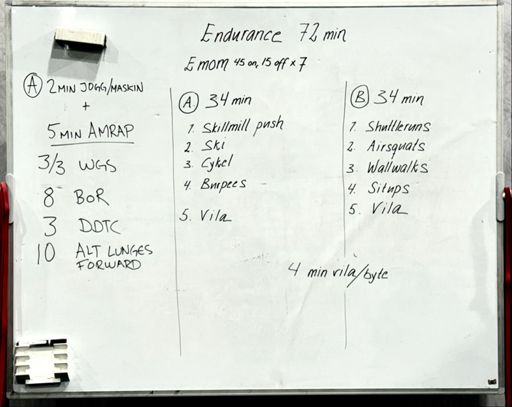 Endurance 72 min
Emom 45 on, 15 off x 7
A 2 MIN JOGG/MASKIN
+
5 MIN AMRAP
3/3 WGS
8 BOR
3 DDTC
10 ALT LUNGES
FORWARD
A 34 min
1. Skillmill push
2. Ski
3. Cykel
4. Burpees
5. Vila
B 34 min
1. Shuttleruns
2. Airsquats
3. Wallwalks
4. Situps
5. Vila
4 min vila/byte